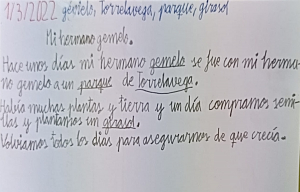 1/3/2022 gemelo, Torrelavega, parque, girasol
Mi hermano gemelo.
Hace unos días mi hermano gemelo se fue con mi herma-
no gemelo a un parque de Torrelavega.
Había muchas plantas y tierra y un día compramos semi-
llas y plantamos un girasol.
Volvíamos todos los días para asegurarnos de que crecía.